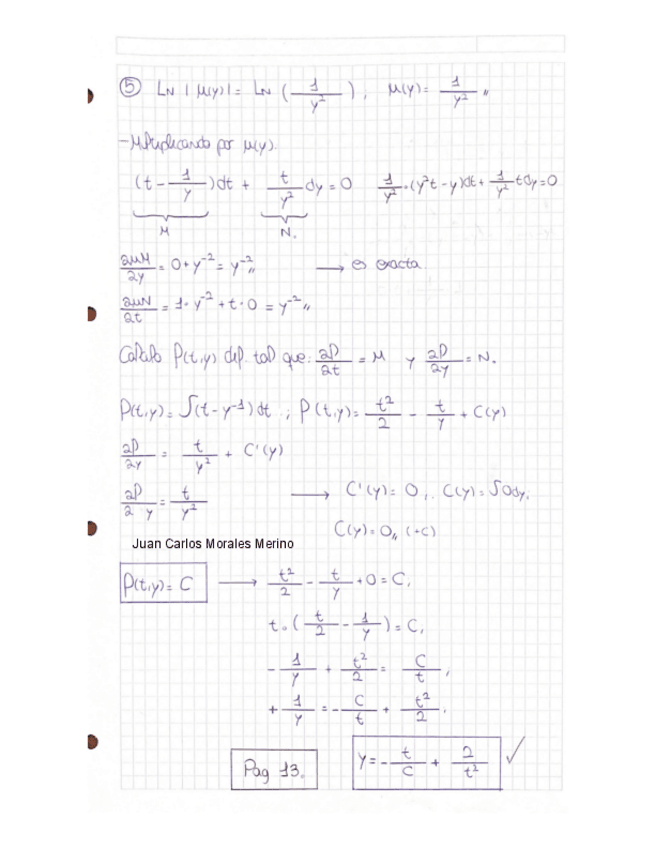 ⑤ LN |μ(y)| = LN (1/y²), μ(y) = 1/y² "
- Multiplicando por μ(y).
(t - 1/y) dt + t/y² dy = 0   1/y² · (y²t - y)dt + 1/y² t dy = 0
M   N.
∂μM/∂y = 0 + y⁻² = y⁻² " → es exacta.
∂μN/∂t = 1 · y⁻² + t · 0 = y⁻² "
Calculo P(t,y) dep. tal que: ∂P/∂t = M y ∂P/∂y = N.
P(t,y) = ∫(t - y⁻¹) dt ; P(t,y) = t²/2 - t/y + C(y)
∂P/∂y = t/y² + C'(y)
∂P/∂y = t/y² → C'(y) = 0, C(y) = ∫0dy,
C(y) = 0 " (+C)
Juan Carlos Morales Merino
P(t,y) = C → t²/2 - t/y + 0 = C,
t · (t/2 - 1/y) = C,
- 1/y + t²/2 = C/t ,
+ 1/y = - C/t + t²/2 ,
y = - t/C + 2/t² ✓
Pag 13.